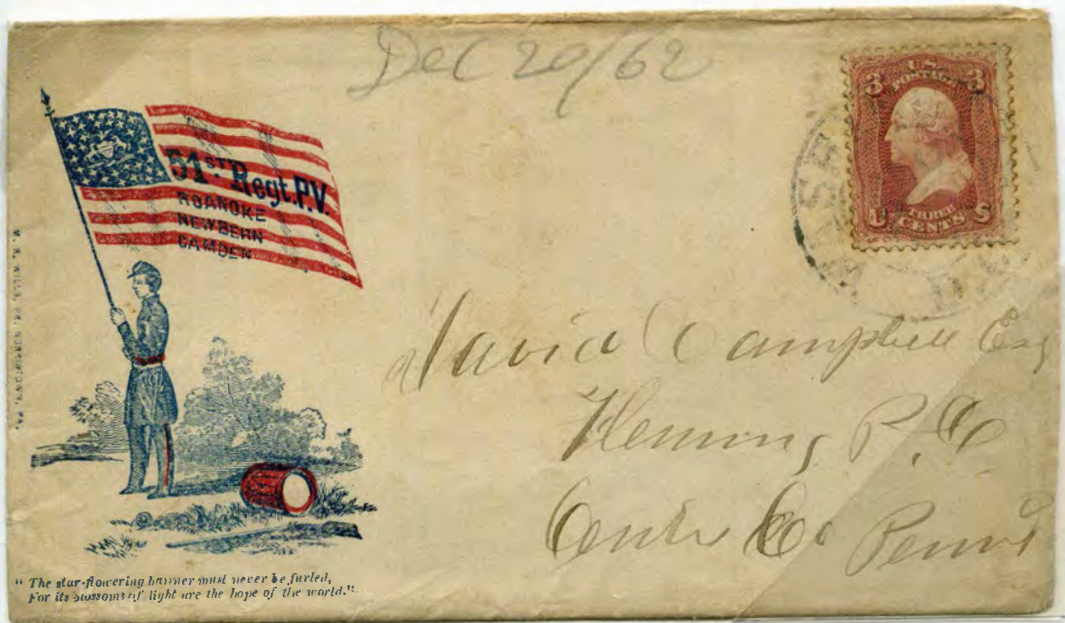 Dec 20/62
3 U.S. POSTAGE 3
U THREE CENTS S
WASH D.C.
51ST Regt. P.V.
ROANOKE
NEWBERN
CAMDEN
David Campbell Esq
Fleming P.O.
Centre Co Penna
NORRISTOWN, PA.
"The star-flowering banner must never be furled,
For its blossoms of light are the hope of the world."